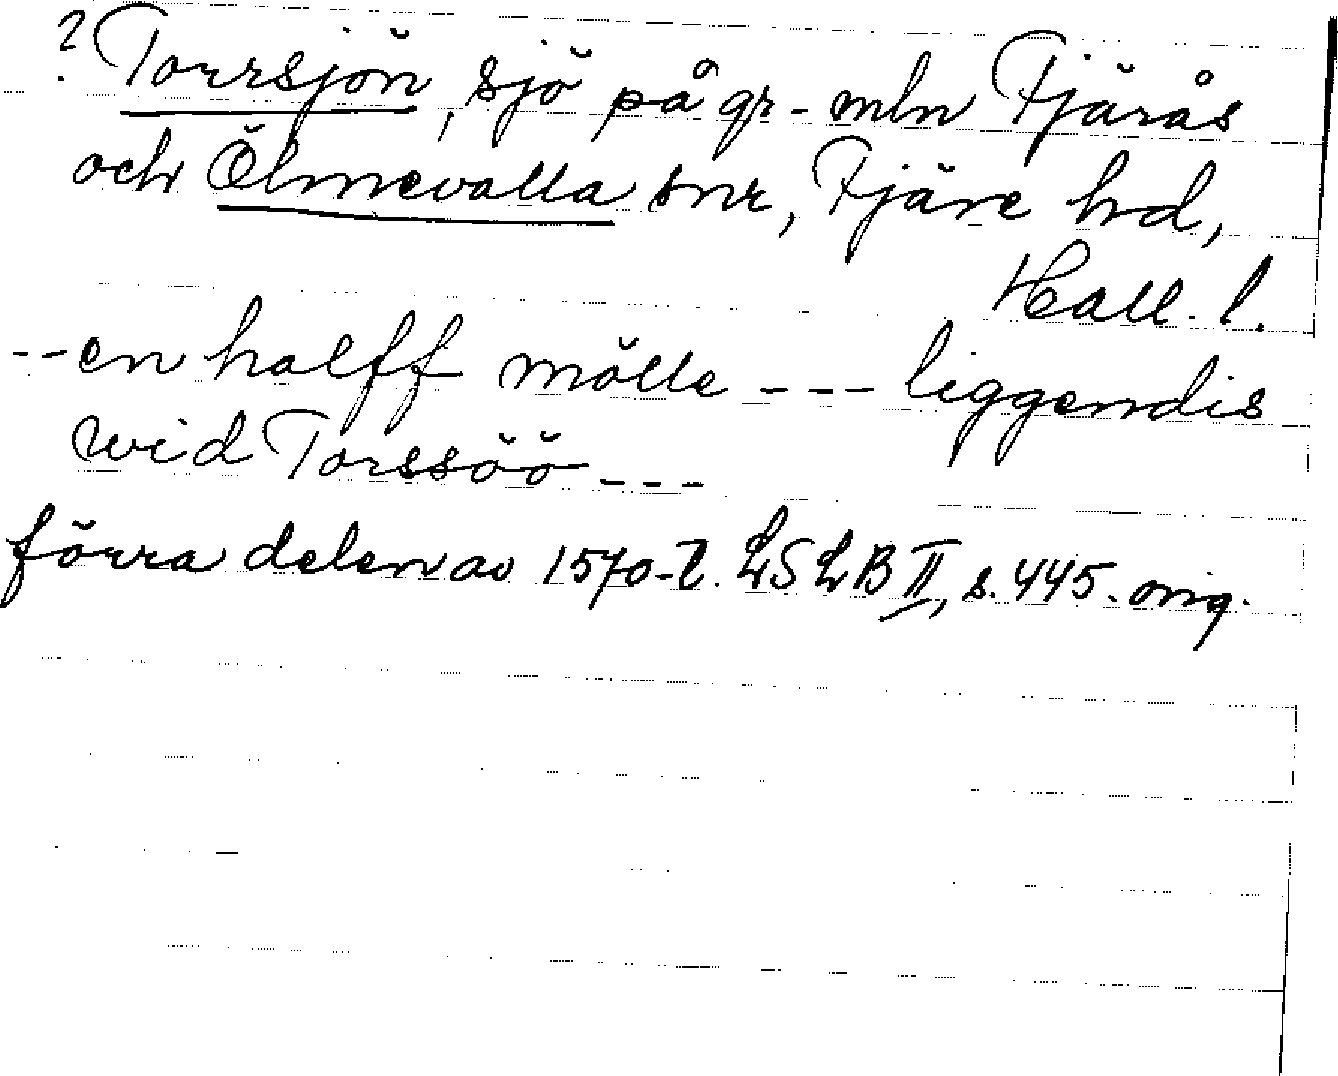 ? Torrsjön, sjö på gr-mln Fjärås
och Ölmevalla snr, Fjäre hd,
Hall. l.
--en halff mölle --- liggendis
wid Torssöö ---
förra delen av 1570-t. LSLB II, s. 445. orig.